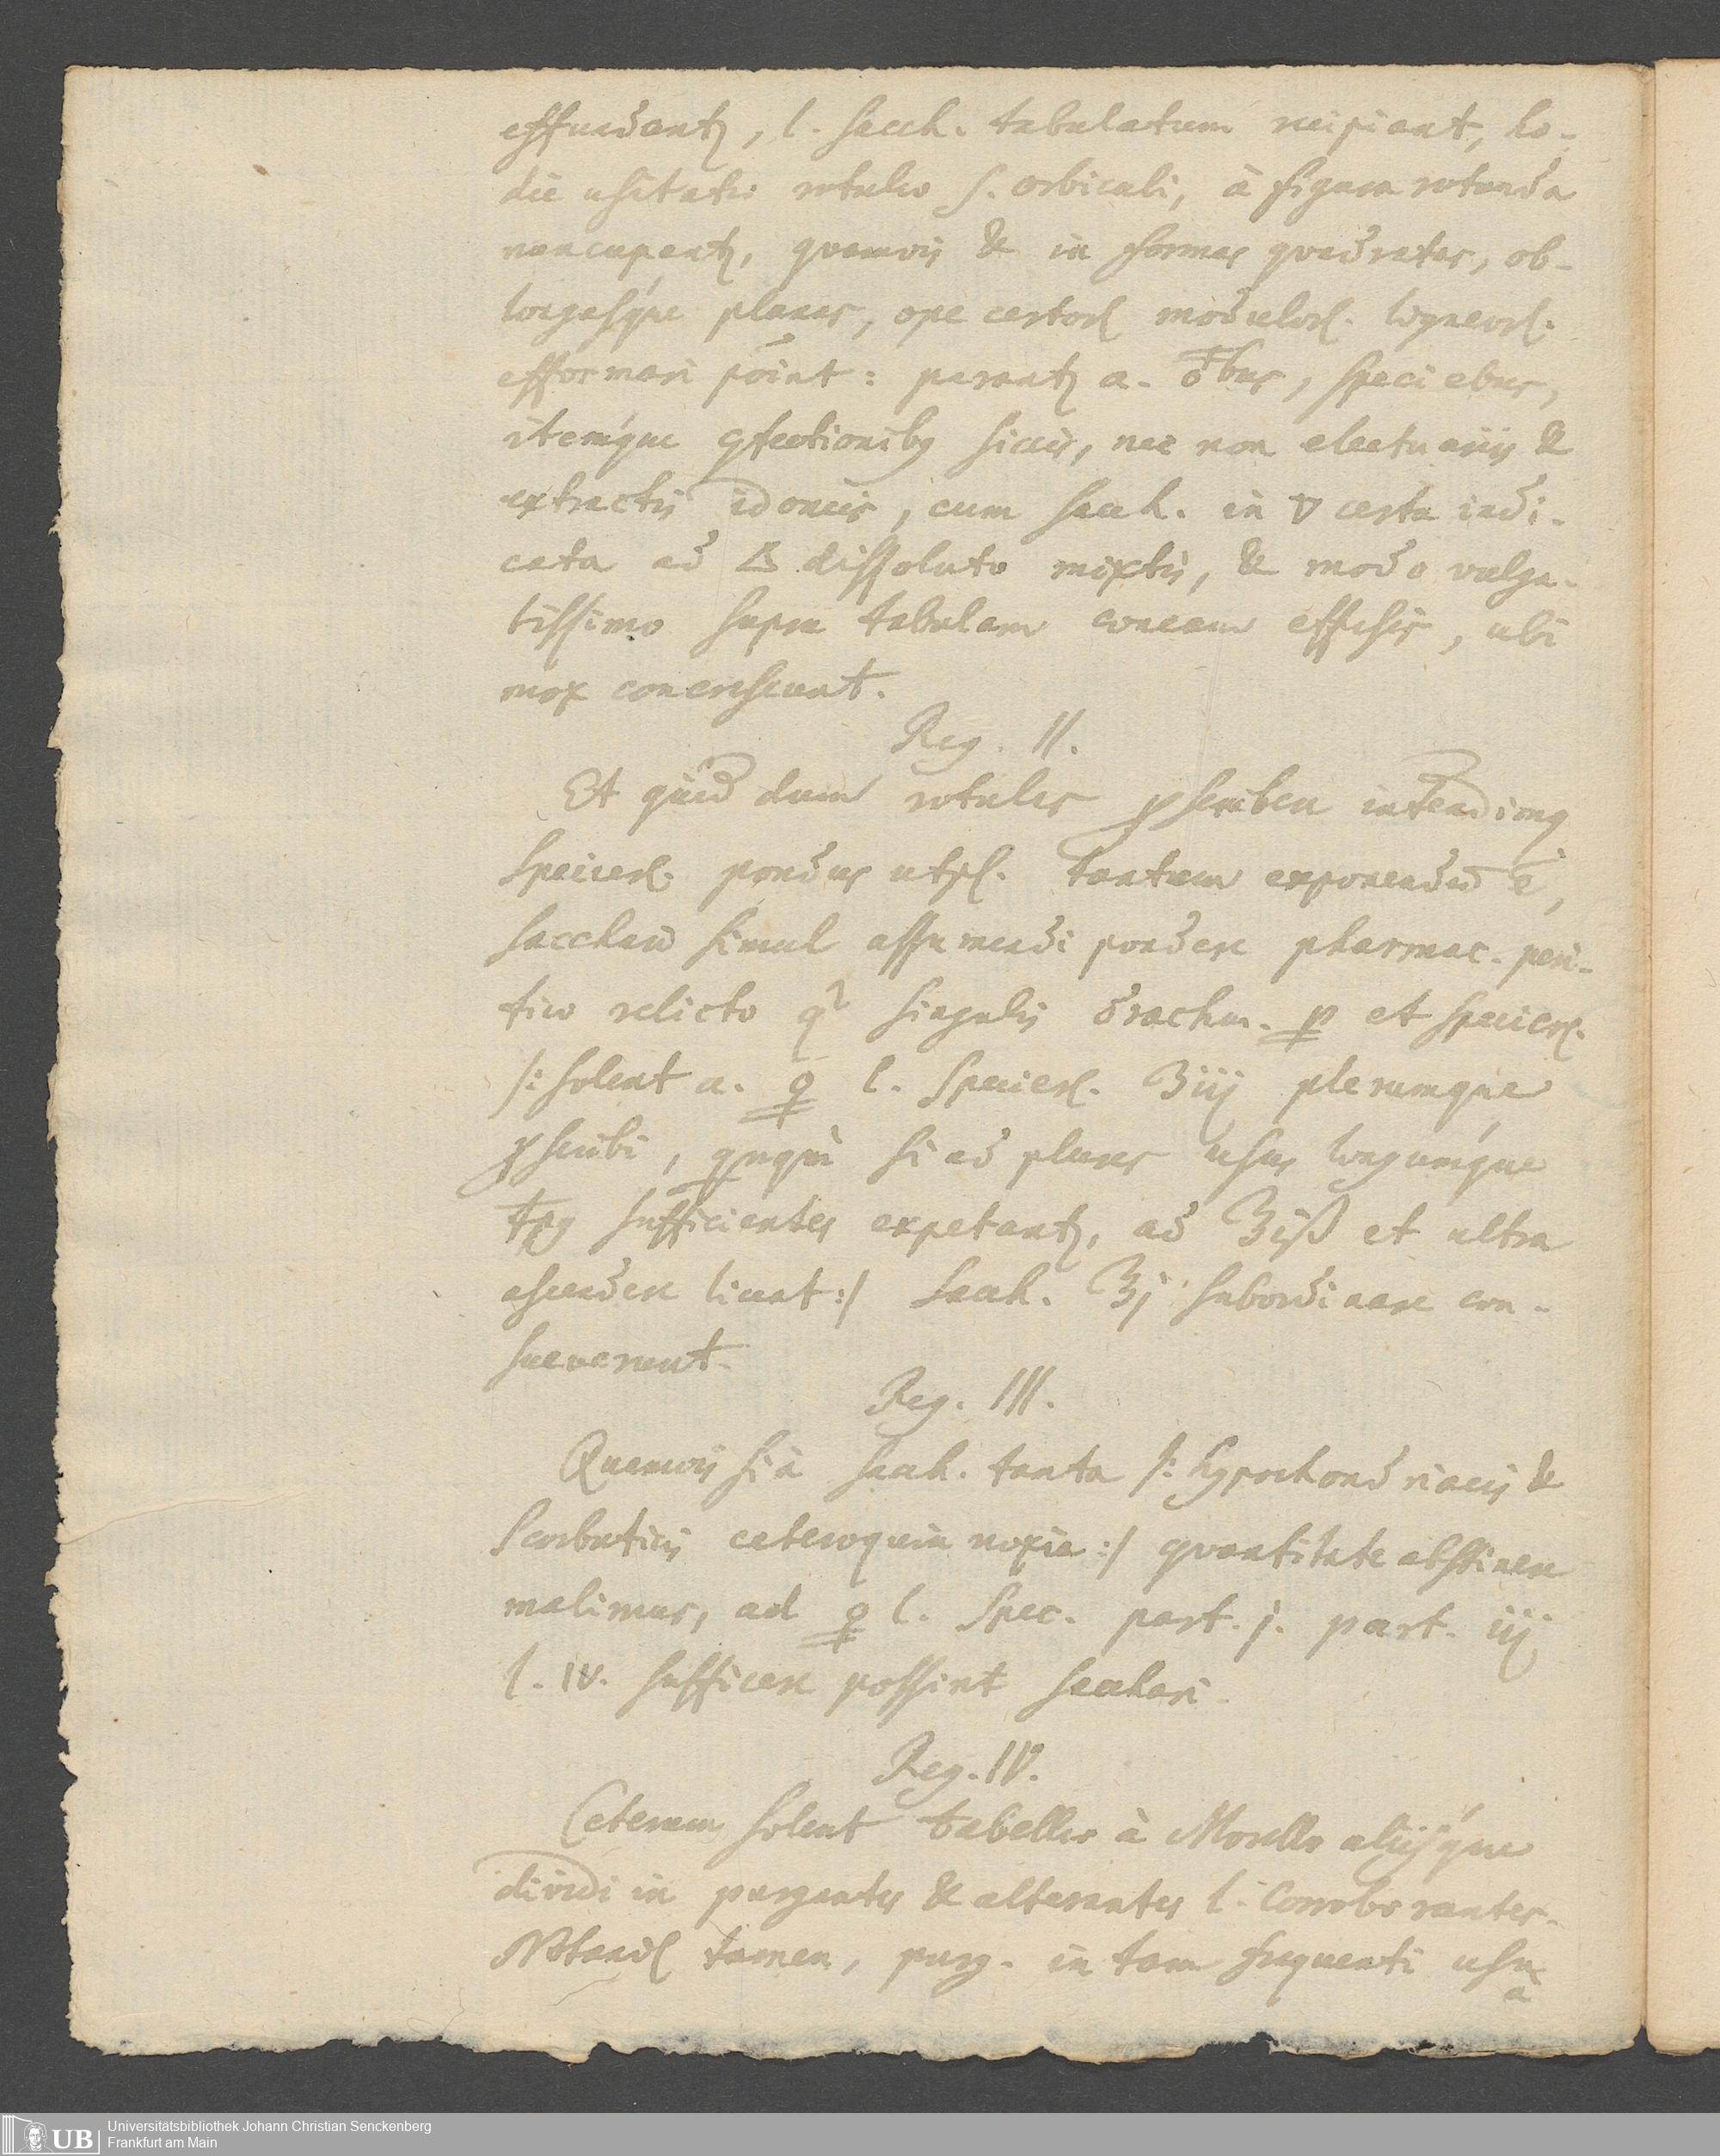 effundantʒ, l. sacch. tabulatum recipiant, ho-
die usitatis rotulis s. orbiculi, à figura rotunda
nuncupantʒ, quamvis & in formas quadratas, ob-
longasq́ue planas, ope certorꝝ modulorꝝ. ligneorꝝ.
efformari pöint: parantʒ a. o̅bus, speciebus,
itemq́ue ꝯfectionibꝯ siccis, nec non electuariis &
extractis idoneis, cum sacch. in ▽ certa indi-
cata ad dissoluto mixtis, & modo vulga-
tissimo supra tabulam æneam effusis, ubi
mox concrescunt.
Reg. II.
Et quid̅ dum rotulas p̱scribere intendimꝯ
specierꝝ. pondus utpl. tantum exponend̅ ē,
sacchari simul assumendi pondere pharmac. peri-
tiæ relicto singulis drachm. et specierꝝ.
/: solent a. l. specierꝝ. ʒiij plerumque
p̱scribi, si ad plures usus longumq́ue
tp̅ꝯ sufficientes expetantʒ, ad ℥iß et ultra
ascendere liceat :/ sacch. ℥j subordinare con-
sueverunt.
Reg. III.
Quamvis si à sacch. tanta /: hypochondriacis &
scorbuticis ceteroquin noxia :/ quantitate abstinere
malimus, ad l. Spec. part. j. part. iij
l. IV. sufficere possint sacchari.
Reg. IV.
Ceterum solent tabellæ à Morello aliisq́ue
dividi in purgantes & alterantes l. Corroborantes.
Notandꝝ tamen, purg. in tam frequenti usu
a